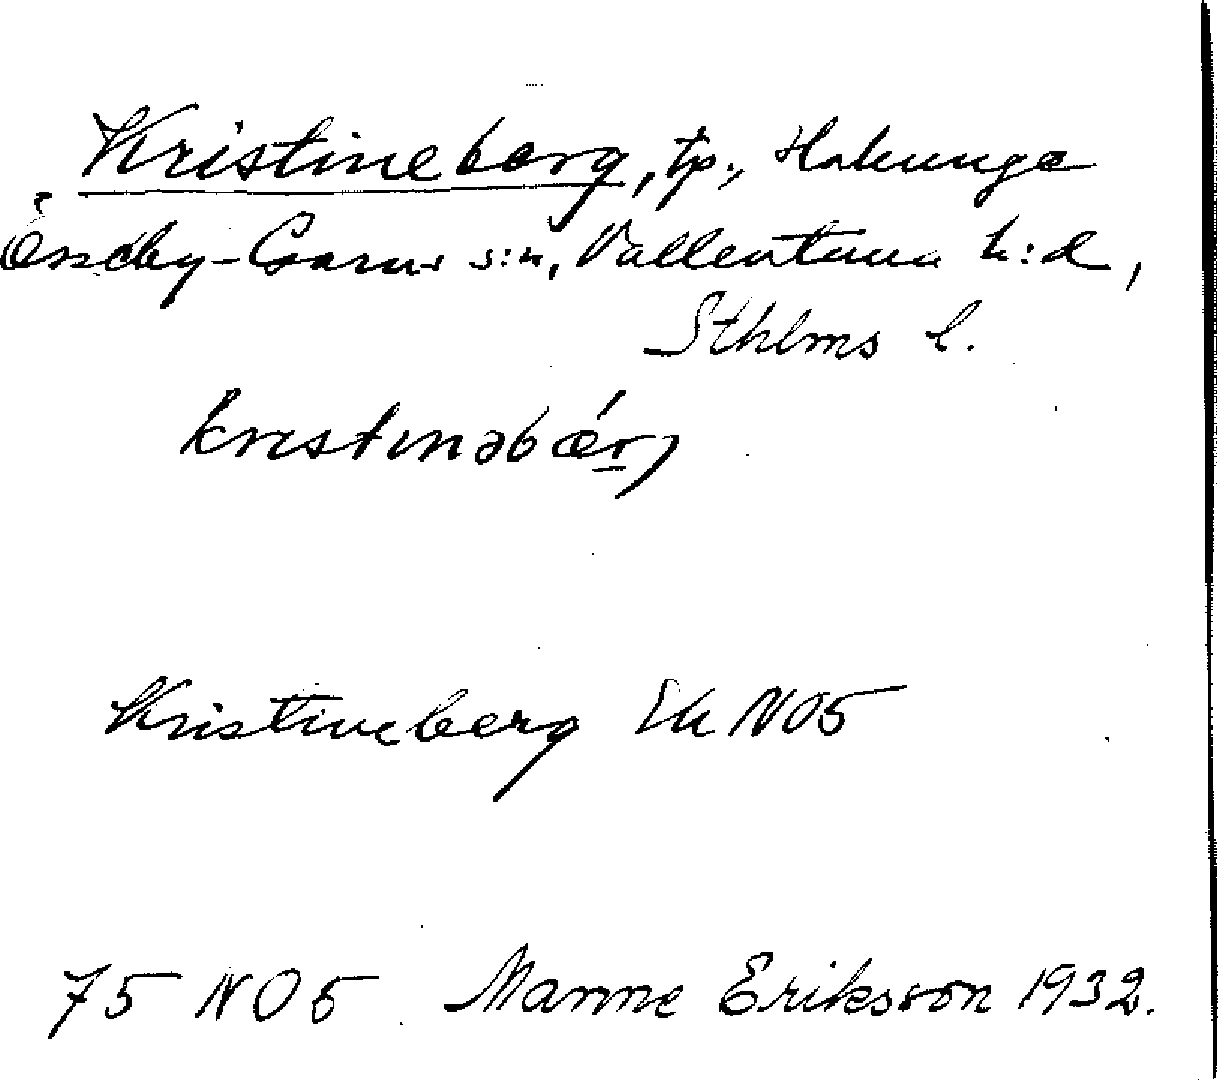 Kristineberg, tp., Hakunge
Össeby-Garns s:n, Vallentuna h:d,
Sthlms l.
kristinəbǽrj
Kristineberg Ek NO5
75 NO5 Manne Eriksson 1932.